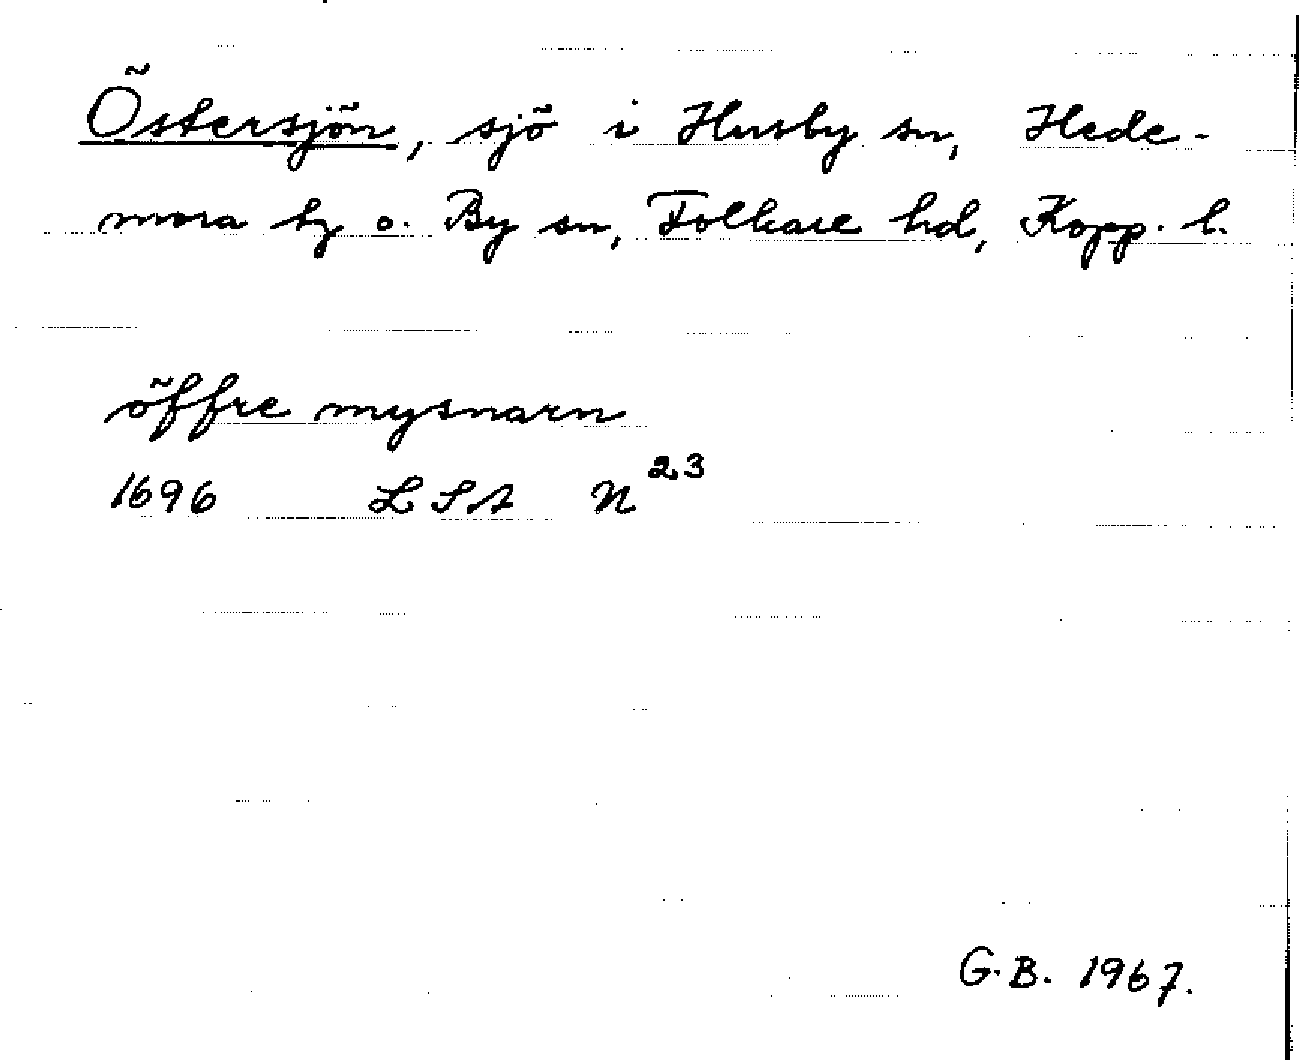 Östersjön, sjö i Husby sn, Hede-
mora tg o. By sn, Folkare hd, Kopp. l.
öffre mysnarn
1696 LSA N²³
G.B. 1967.